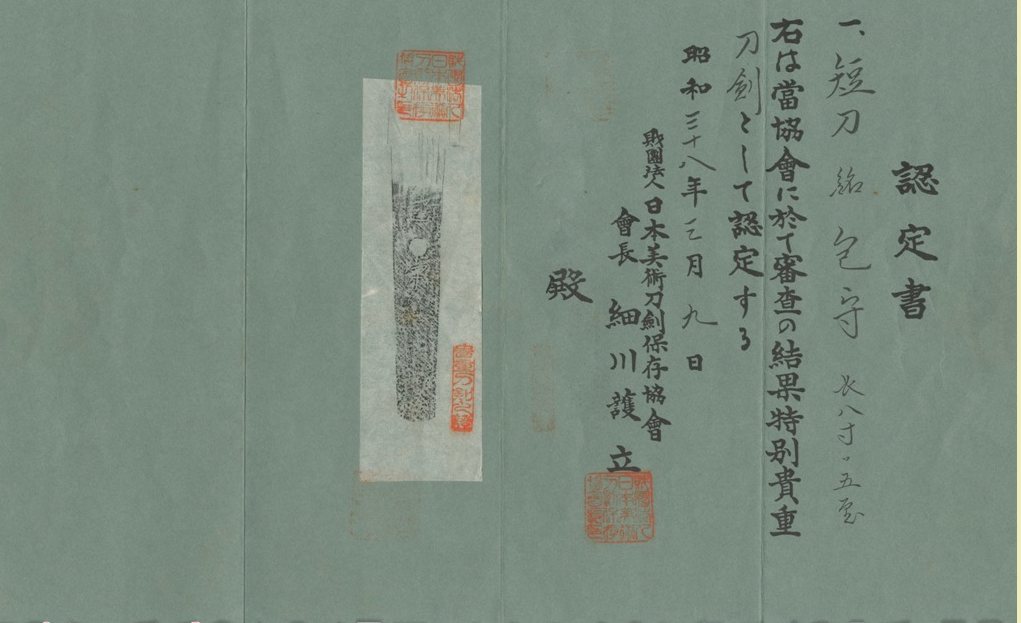 認定書
一、短刀 銘 包守 長八寸、五厘
右は當協會に於て審査の結果特別貴重
刀剣として認定する
昭和三十八年三月九日
財團法人日本美術刀剣保存協會
會長 細川護立
殿